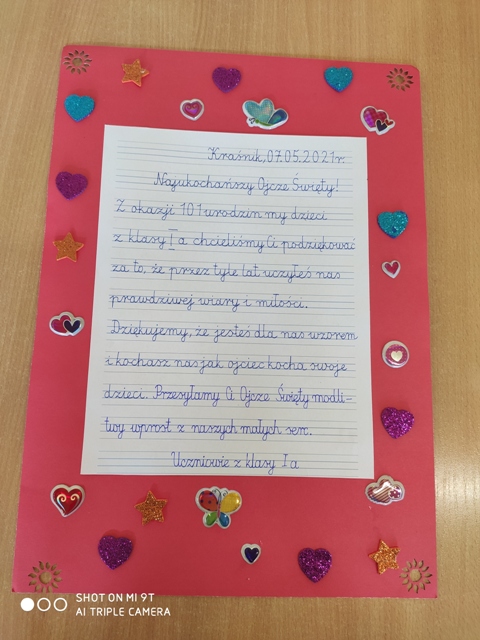 Kraśnik, 07.05.2021r.
Najukochańszy Ojcze Święty!
Z okazji 101 urodzin my dzieci
z klasy I a chcieliśmy Ci podziękować
za to, że przez tyle lat uczyłeś nas
prawdziwej wiary i miłości.
Dziękujemy, że jesteś dla nas wzorem
i kochasz nas jak ojciec kocha swoje
dzieci. Przesyłamy Ci Ojcze Święty modli-
twy wprost z naszych małych serc.
Uczniowie z klasy I a
SHOT ON MI 9T
AI TRIPLE CAMERA